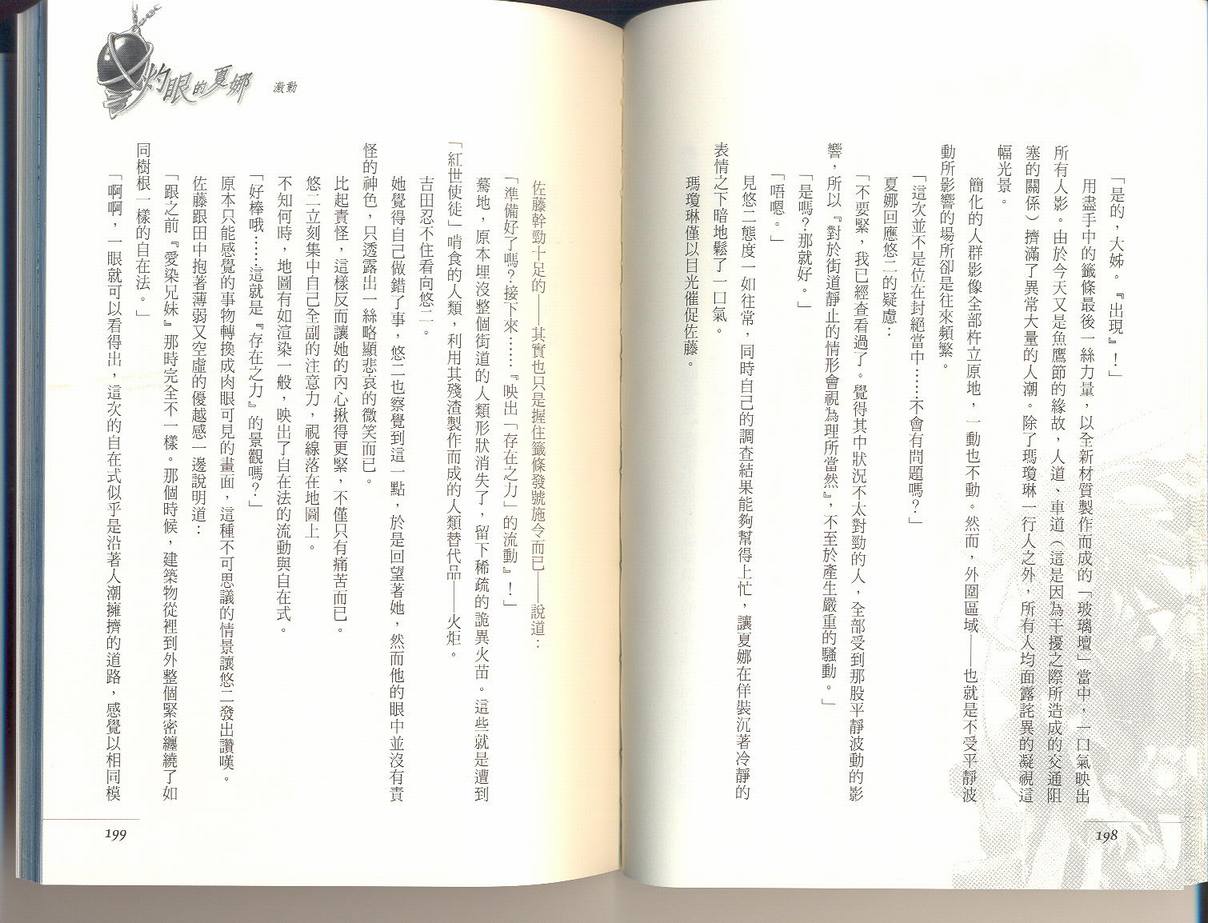 「是的，大姊。『出現』！」
用盡手中的籤條最後一絲力量，以全新材質製作而成的「玻璃壇」當中，一口氣映出
所有人影。由於今天又是魚鷹節的緣故，人道、車道（這是因為干擾之際所造成的交通阻
塞的關係）擠滿了異常大量的人潮。除了瑪瓊琳一行人之外，所有人均面露詫異的凝視這
幅光景。
簡化的人群影像全部杵立原地，一動也不動。然而，外圍區域——也就是不受平靜波
動所影響的場所卻是往來頻繁。
「這次並不是位在封絕當中……不會有問題嗎？」
夏娜回應悠二的疑慮：
「不要緊，我已經查看過了。覺得其中狀況不太對勁的人，全部受到那股平靜波動的影
響，所以『對於街道靜止的情形會視為理所當然』，不至於產生嚴重的騷動。」
「是嗎？那就好。」
「唔嗯。」
見悠二態度一如往常，同時自己的調查結果能夠幫得上忙，讓夏娜在佯裝沉著冷靜的
表情之下暗地鬆了一口氣。
瑪瓊琳僅以目光催促佐藤。
198
灼眼的夏娜 激動
佐藤幹勁十足的——其實也只是握住籤條發號施令而已——說道：
「準備好了嗎？接下來……『映出「存在之力」的流動』！」
驀地，原本埋沒整個街道的人類形狀消失了，留下稀疏的詭異火苗。這些就是遭到
「紅世使徒」啃食的人類，利用其殘渣製作而成的人類替代品——火炬。
吉田忍不住看向悠二。
她覺得自己做錯了事，悠二也察覺到這一點，於是回望著她，然而他的眼中並沒有責
怪的神色，只透露出一絲略顯悲哀的微笑而已。
比起責怪，這樣反而讓她的內心揪得更緊，不僅只有痛苦而已。
悠二立刻集中自己全副的注意力，視線落在地圖上。
不知何時，地圖有如渲染一般，映出了自在法的流動與自在式。
「好棒哦……這就是『存在之力』的景觀嗎？」
原本只能感覺的事物轉換成肉眼可見的畫面，這種不可思議的情景讓悠二發出讚嘆。
佐藤跟田中抱著薄弱又空虛的優越感一邊說明道：
「跟之前『愛染兄妹』那時完全不一樣。那個時候，建築物從裡到外整個緊密纏繞了如
同樹根一樣的自在法。」
「啊啊，一眼就可以看得出，這次的自在式似乎是沿著人潮擁擠的道路，感覺以相同模
199